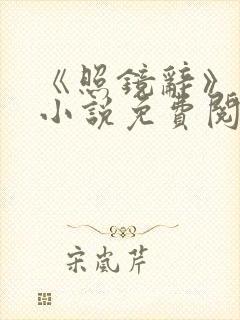 《照鏡辭》
小說免費閱
宋嵐芹